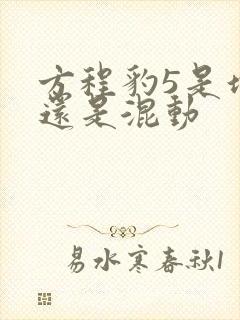 方程豹5是
還是混動
易水寒春秋1